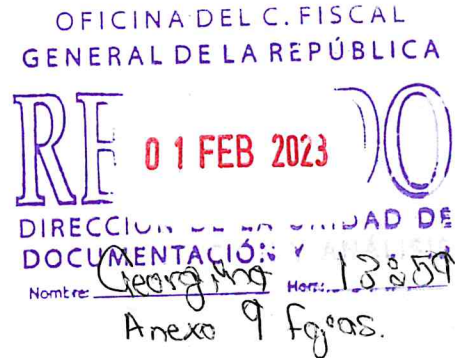 OFICINA DEL C. FISCAL
GENERAL DE LA REPÚBLICA
01 FEB 2023
DE
DOCUMENTACIÓN Y ANÁLISIS
Nombre: Georgina Hora: 13:59
Anexo 9 fojas.